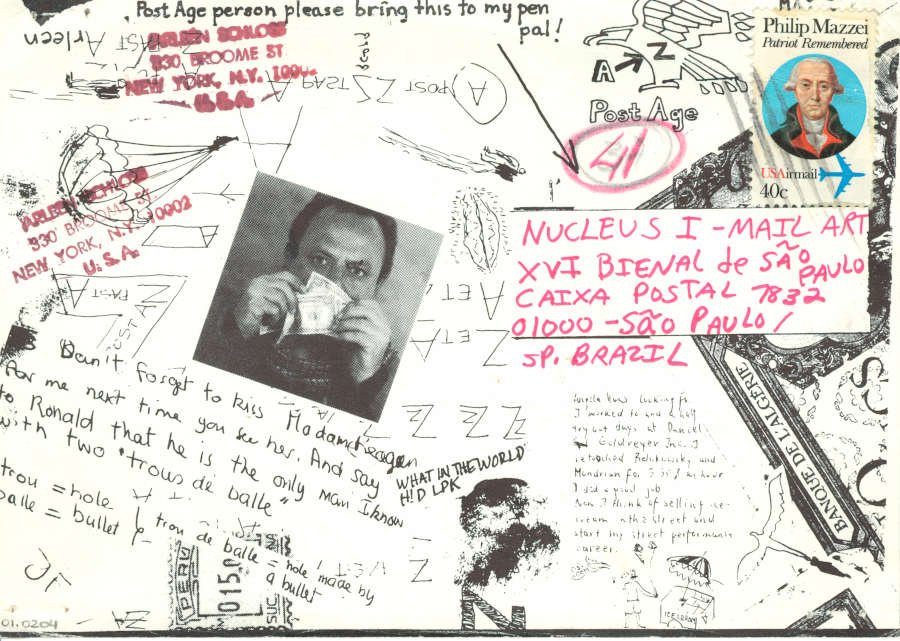 Post Age person please bring this to my pen
pal!
Arleen
ARLEEN SCHLOSS
330 BROOME ST
NEW YORK, N.Y. 10002
U.S.A.
A POST Z
A Z
Post Age
41
Philip Mazzei
Patriot Remembered
USAirmail
40c
ARLEEN SCHLOSS
330 BROOME ST.
NEW YORK, N.Y. 10002
U.S.A.
NUCLEUS I - MAIL ART
XVI BIENAL de SÃO
PAULO
CAIXA POSTAL 7832
01000 - SÃO PAULO/
SP. BRAZIL
PAST A
Z
A ET
ZETA
Z Z Z Z
Don't forget to kiss Madame Reagan
for me next time you see her. And say
to Ronald that he is the only man I know
with two "trous de balle"
trou = hole
balle = bullet
trou de balle = hole made by
a bullet
WHAT IN THE WORLD
H!D LPK
looking for
I worked to and a half
try out days at Daniel
Goldreyer Inc. I
retouched
Mondrian for 3.35 $ an hour
I did a good job
Now I think of selling ice-
cream on the street and
start my street performance
career.
ICE CREAM
BANQUE DE L'ALGERIE
PERU
015.0
SUC
01.0204